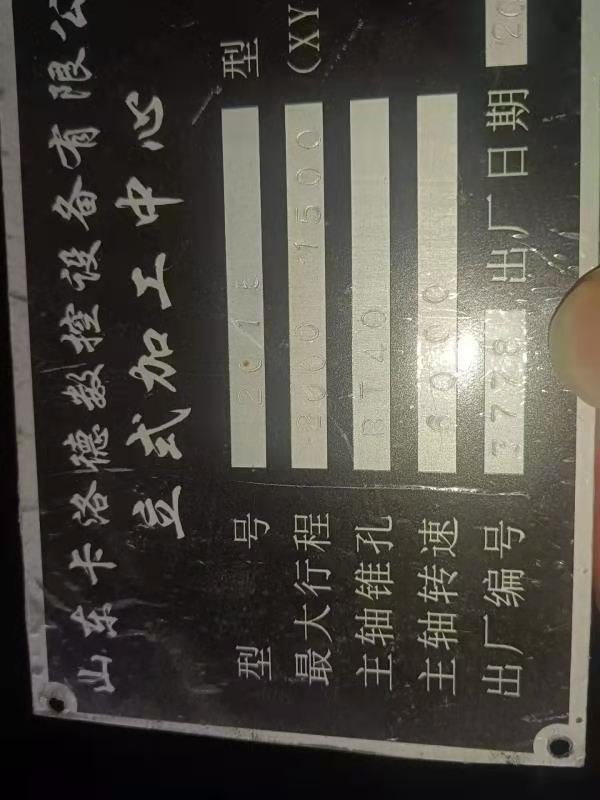 山东卡洛德数控设备有限公
立式加工中心
型 号 201E 型
最大行程 2000 1500 (XY
主轴锥孔 BT40
主轴转速 6000
出厂编号 3778 出厂日期 20